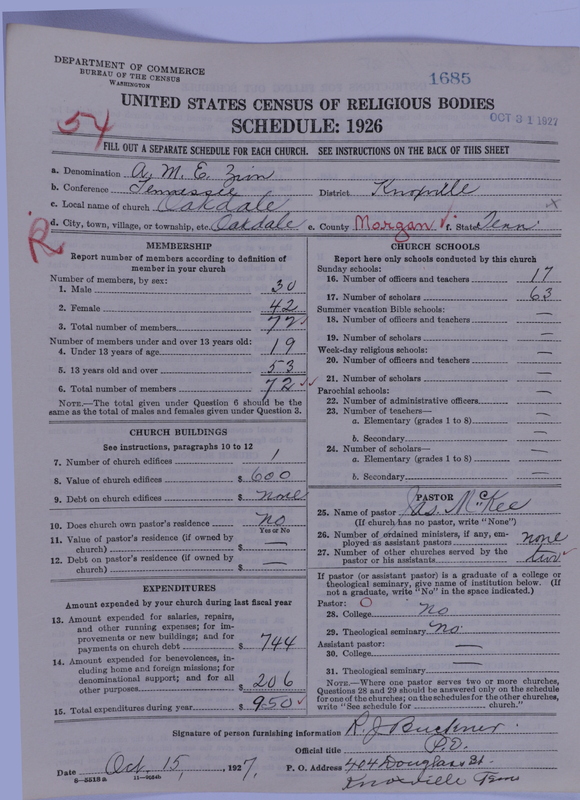 DEPARTMENT OF COMMERCE
BUREAU OF THE CENSUS
WASHINGTON
1685
UNITED STATES CENSUS OF RELIGIOUS BODIES
OCT 31 1927
54
SCHEDULE: 1926
FILL OUT A SEPARATE SCHEDULE FOR EACH CHURCH. SEE INSTRUCTIONS ON THE BACK OF THIS SHEET
a. Denomination A. M. E. Zion
b. Conference Tennessee District Knoxville
c. Local name of church Oakdale
d. City, town, village, or township, etc. Oakdale e. County Morgan f. State Tenn
R
MEMBERSHIP
Report number of members according to definition of
member in your church
Number of members, by sex:
1. Male 30
2. Female 42
3. Total number of members 72
Number of members under and over 13 years old:
4. Under 13 years of age 19
5. 13 years old and over 53
6. Total number of members 72
NOTE.—The total given under Question 6 should be the
same as the total of males and females given under Question 3.
CHURCH BUILDINGS
See instructions, paragraphs 10 to 12
7. Number of church edifices 1
8. Value of church edifices $ 600
9. Debt on church edifices $ none
10. Does church own pastor's residence No
Yes or No
11. Value of pastor's residence (if owned by
church) $ —
12. Debt on pastor's residence (if owned by
church) $ —
EXPENDITURES
Amount expended by your church during last fiscal year
13. Amount expended for salaries, repairs,
and other running expenses; for im-
provements or new buildings; and for
payments on church debt $ 744
14. Amount expended for benevolences, in-
cluding home and foreign missions; for
denominational support; and for all
other purposes $ 206
15. Total expenditures during year $ 950
CHURCH SCHOOLS
Report here only schools conducted by this church
Sunday schools:
16. Number of officers and teachers 17
17. Number of scholars 63
Summer vacation Bible schools:
18. Number of officers and teachers —
19. Number of scholars —
Week-day religious schools:
20. Number of officers and teachers —
21. Number of scholars —
Parochial schools:
22. Number of administrative officers —
23. Number of teachers—
a. Elementary (grades 1 to 8) —
b. Secondary —
24. Number of scholars—
a. Elementary (grades 1 to 8) —
b. Secondary —
PASTOR
25. Name of pastor Jas. McKee
(If church has no pastor, write "None")
26. Number of ordained ministers, if any, em-
ployed as assistant pastors none
27. Number of other churches served by the
pastor or his assistants two
If pastor (or assistant pastor) is a graduate of a college or
theological seminary, give name of institution below. (If
not a graduate, write "No" in the space indicated.)
Pastor:
28. College No
29. Theological seminary No
Assistant pastor:
30. College —
31. Theological seminary —
NOTE.—Where one pastor serves two or more churches,
Questions 28 and 29 should be answered only on the schedule
for one of the churches; on the schedules for the other churches,
write "See schedule for church."
Signature of person furnishing information R. J. Buckner
Official title P.E.
Date Oct. 15, 1927. P. O. Address 404 Douglass St.
8-5518a Knoxville Tenn